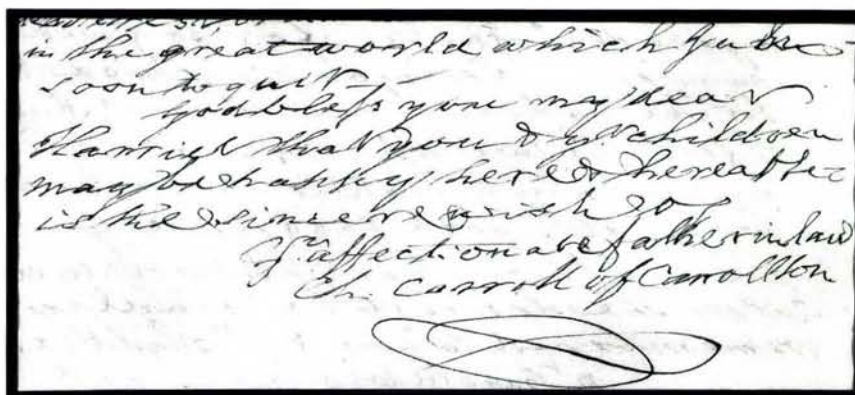 in the great world which
soon to quit
God bless you my dear
Harriet that you & yr. children
may be happy here & hereafter
is the sincere wish of
Yr. affectionate father in law
Ch. Carroll of Carrollton